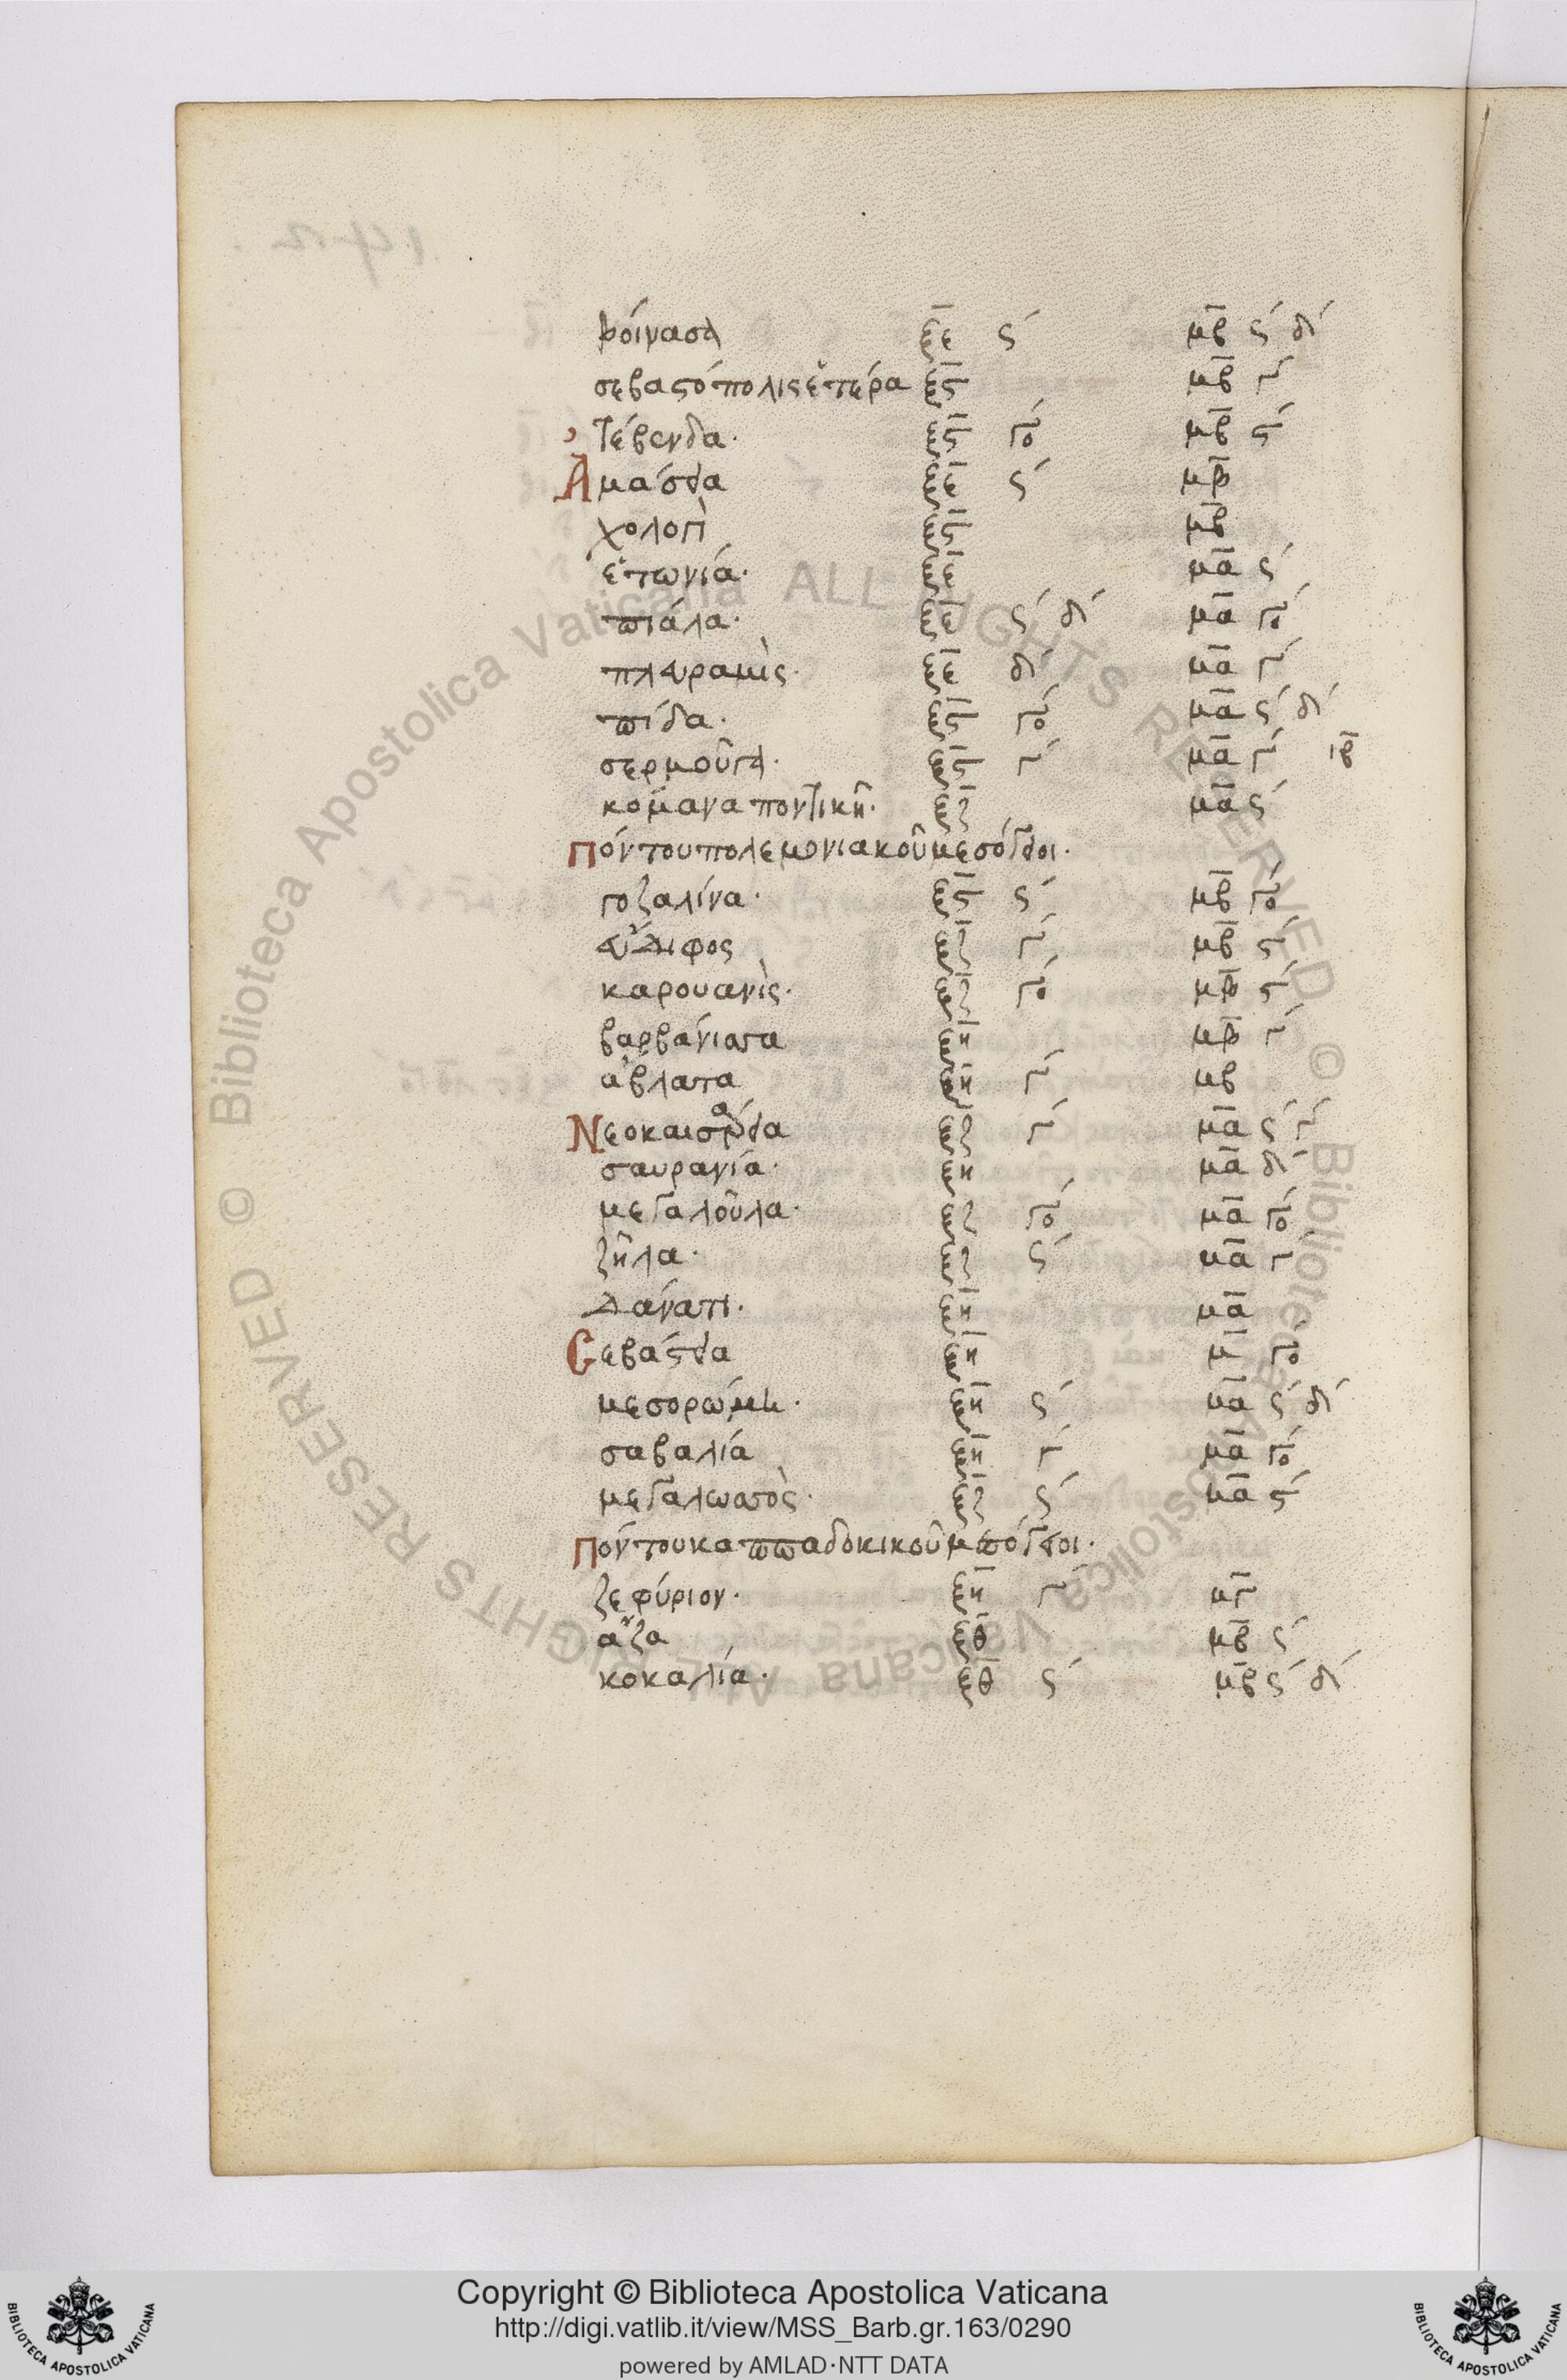 φοίνασα ξε ϛ´ μβ ϛ´ δ´
σεβαςόπολις ἑτέρα ξϛ μβ γ´
ἰέβενδα· ξϛ γο´ μβ ϛ´
Ἀμάσεια ξε ϛ´ μβ
χολογὶ ξϛ μβ
ἐτωνία· ξε μα ϛ´
πιάλα· ξε ϛ´ δ´ μα γο´
πλευραμὶς· ξε δ´ μα γ´
πίδα· ξϛ γο´ μα ϛ´ δ´
σερμοῦγα· ξϛ γ´ μα γ´ ιβ
κόμανα ποντικῆ· ξζ μα ϛ´
Πόντου πολεμονιακοῦ μεσόγειοι·
γοζαλίνα· ξϛ ϛ´ μβ γο´
εὔδιφος ξζ γ´ μβ ϛ´
καρουανὶς· ξζ γο´ μβ ϛ´
βαρβάνισσα ξη μβ γ´
ἄβλατα ξη γ´ μβ
Νεοκαισάρεια ξζ γ´ μα ϛ´ γ´
σαυρανία· ξη μα δ´
μεγαλοῦλα· ξζ γο´ μα γο´
ζῆλα· ξζ ϛ´ μα γ´
Δάναπι· ξη μα
Σεβάςεια ξη μ γο´
μεσορώμη· ξη ϛ´ μα ϛ´ δ´
σαβαλία ξη γ´ μα γο´
μεγαλωσσὸς· ξζ ϛ´ μα ϛ´
Πόντου καππαδοκικοῦ μεσόγειοι·
ζεφύριον· ξη γ´ μγ
ἄζα ξθ μβ ϛ´
κοκαλία· ξθ ϛ´ μβ ϛ´ δ´
Copyright © Biblioteca Apostolica Vaticana
http://digi.vatlib.it/view/MSS_Barb.gr.163/0290
powered by AMLAD·NTT DATA